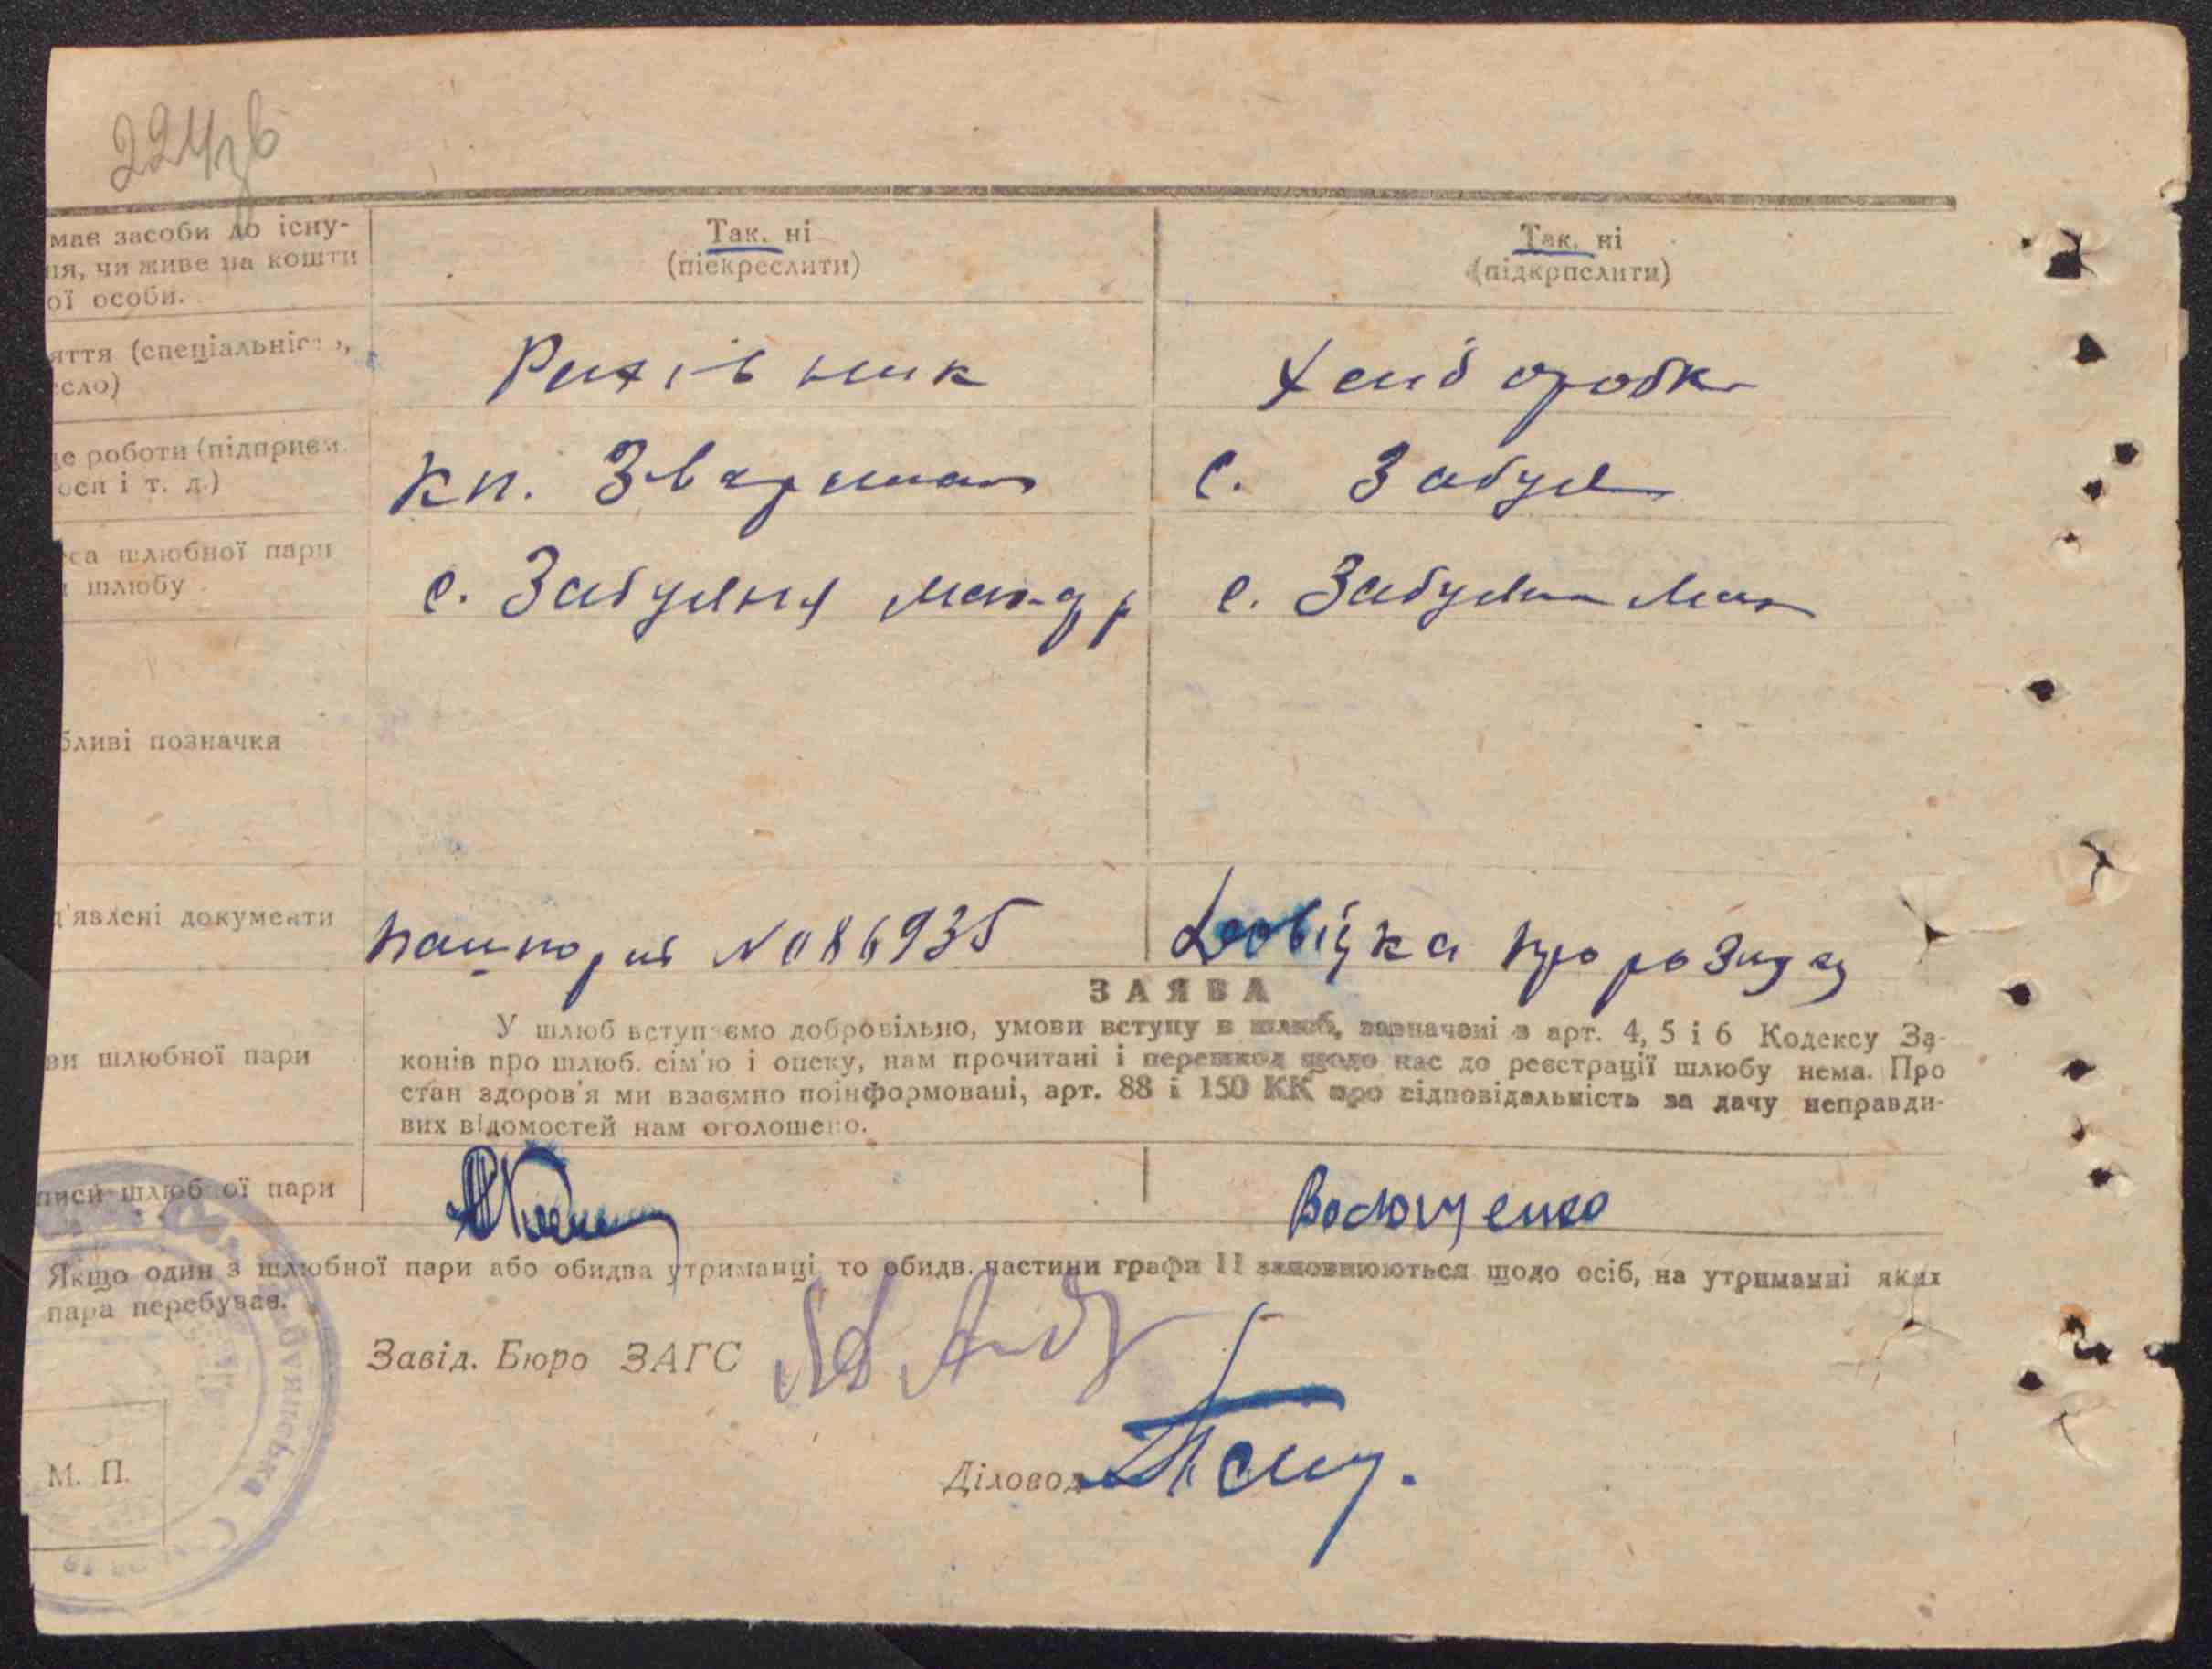 має засоби до існу-
ня, чи живе на кошти
ої особи.
Так, ні
(піекреслити)
Так, ні
(підкрпслити)
яття (спеціальніс
сло)
Рахівник
Хліборобка
це роботи (підприєм.
осп і т. д.)
кп.
с. Забуя
са шлюбної пари
шлюбу
с. Забуяння
с. Забуян
бливі позначкя
д'явлені документи
паспорт № 086935
Довідка про
ЗАЯВА
ви шлюбної пари
У шлюб вступаємо добровільно, умови вступу в шлюб, зазначені в арт. 4, 5 і 6 Кодексу За-
конів про шлюб. сім'ю і опеку, нам прочитані і перешкод щодо нас до реєстрації шлюбу нема. Про
стан здоров'я ми взаємно поінформовані, арт. 88 і 150 КК про відповідальність за дачу неправди-
вих відомостей нам оголошено.
писи шлюбної пари
Якщо один з шлюбної пари або обидва утриманці то обидв. частини графи 11 заповнюються щодо осіб, на утриманні яких
пара перебуває.
Завід. Бюро ЗАГС
М. П.
Діловод